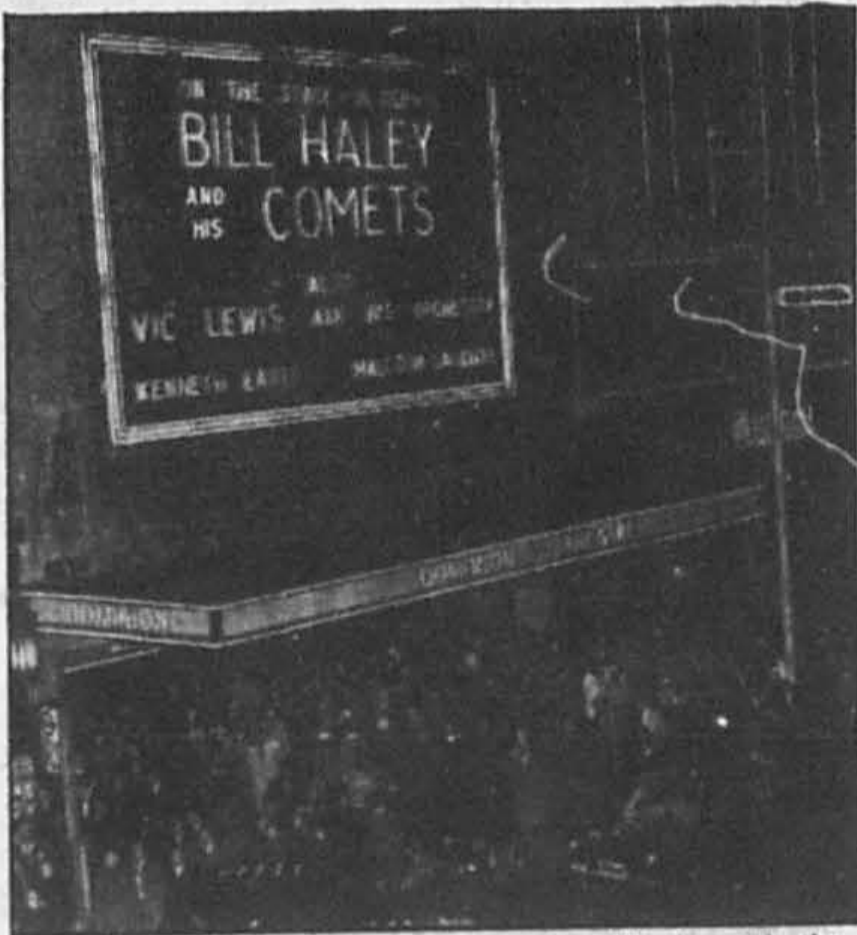 ON THE STAGE
BILL HALEY
AND
HIS COMETS
ALSO
VIC LEWIS AND HIS ORCHESTRA
KENNETH EARLE
DOMINION
DOMINION THEATRE